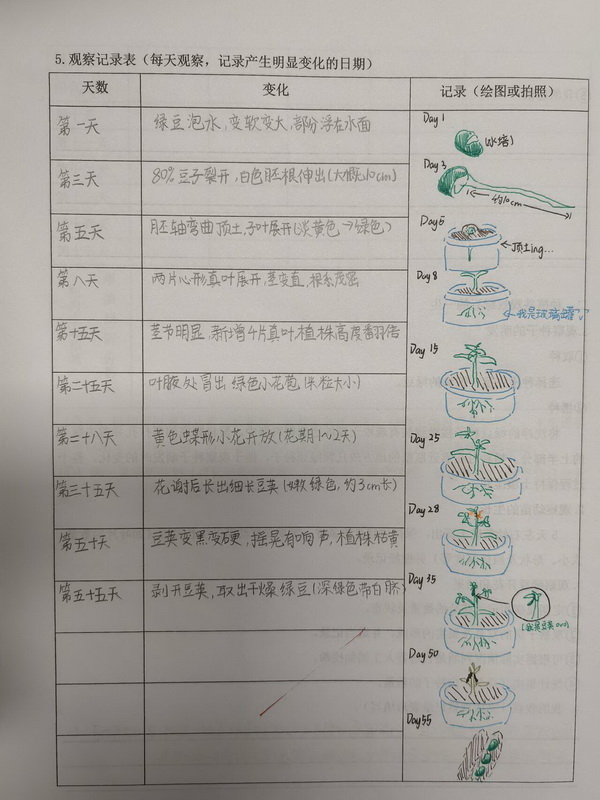 5.观察记录表（每天观察，记录产生明显变化的日期）
天数 变化 记录（绘图或拍照）
第一天 绿豆泡水，变软变大，部份浮在水面 Day 1
(水培)
第三天 80%豆子裂开，白色胚根伸出(大概10cm) Day 3
约10cm
第五天 胚轴弯曲顶土，子叶展开(淡黄色→绿色) Day5
←顶土ing...
第八天 两片心形真叶展开，茎变直，根系茂密 Day8
←我是玻璃罐
第十五天 茎节明显，新增4片真叶，植株高度翻倍 Day 15
第二十五天 叶腋处冒出绿色小花苞(米粒大小)
第二十八天 黄色蝶形小花开放(花期1~2天) Day 25
第三十五天 花谢后长出细长豆荚(嫩绿色，约3cm长)
第五十天 豆荚变黑变硬，摇晃有响声，植株枯黄 Day 28
第五十五天 剥开豆荚，取出干燥绿豆(深绿色带白脐) Day 35
Day 50
Day 55